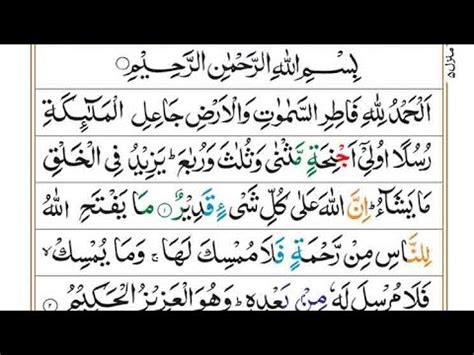 بِسْمِ اللهِ الرَّحْمٰنِ الرَّحِيْمِ○
اَلْحَمْدُ لِلّٰهِ فَاطِرِ السَّمٰوٰتِ وَالْاَرْضِ جَاعِلِ الْمَلٰٓئِكَةِ
رُسُلًا اُولِىْٓ اَجْنِحَةٍ مَّثْنٰى وَثُلٰثَ وَرُبٰعَ ؕ يَزِيْدُ فِى الْخَلْقِ
مَا يَشَآءُ ؕ اِنَّ اللهَ عَلٰى كُلِّ شَىْءٍ قَدِيْرٌ ۱ مَا يَفْتَحِ اللهُ
لِلنَّاسِ مِنْ رَّحْمَةٍ فَلَا مُمْسِكَ لَهَا ۚ وَمَا يُمْسِكْ ۙ
فَلَا مُرْسِلَ لَهٗ مِنْۢ بَعْدِهٖ ؕ وَهُوَ الْعَزِيْزُ الْحَكِيْمُ ۲
منزل ۵